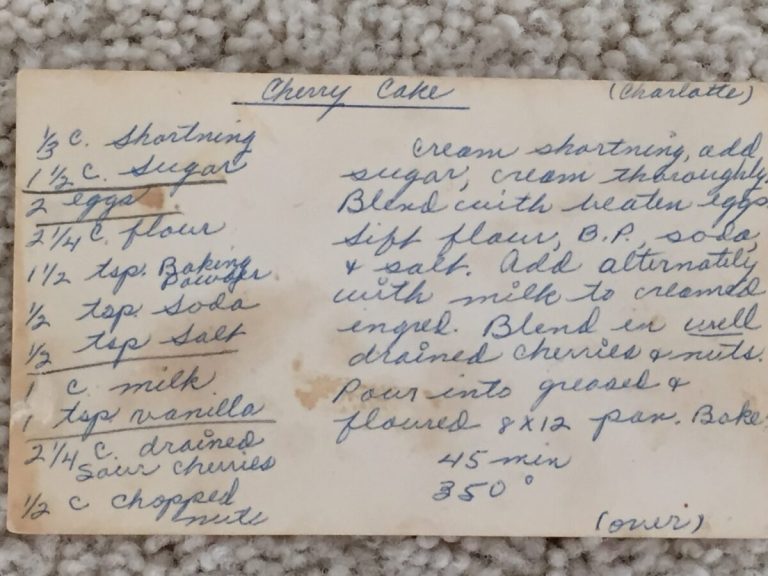 Cherry Cake (Charlotte)
1/3 c. shortning
1 1/2 c. sugar
2 eggs
2 1/4 c. flour
1 1/2 tsp. Baking
powder
1/2 tsp. soda
1/2 tsp salt
1 c. milk
1 tsp. vanilla
2 1/4 c. drained
sour cherries
1/2 c chopped
nuts
cream shortning, add
sugar, cream thoroughly.
Blend with beaten eggs
Sift flour, B.P., soda,
& salt. Add alternately
with milk to creamed
ingred. Blend in well
drained cherries & nuts.
Pour into greased &
floured 8x12 pan. Bake
45 min
350°
(over)